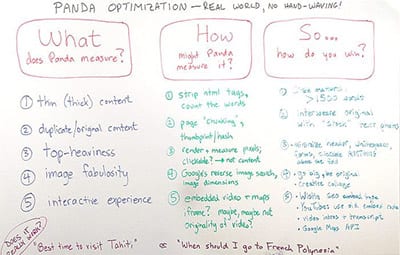 PANDA OPTIMIZATION — REAL WORLD, NO HAND-WAVING!
What
does Panda measure?
① thin (thick) content
② duplicate/original content
③ top-heaviness
④ image fabulosity
⑤ interactive experience
How
might Panda
measure it?
① strip html tags,
count the words
② page "chunking",
thumbprint/hash
③ render + measure pixels;
clickable? → not content
④ Google's reverse image search,
image dimensions
⑤ embedded video + maps
iframe? maybe, maybe not
originality of video?
So...
how do you win?
①
>1500 words
② Interweave original
with "stock"
③ minimize header, whitespace,
forms,
④ go big, go original
Creative collage
⑤
YouTubes
video intro + transcript
Google Maps API
DOES IT
REALLY WORK?
"Best time to visit Tahiti" vs "When should I go to French Polynesia"